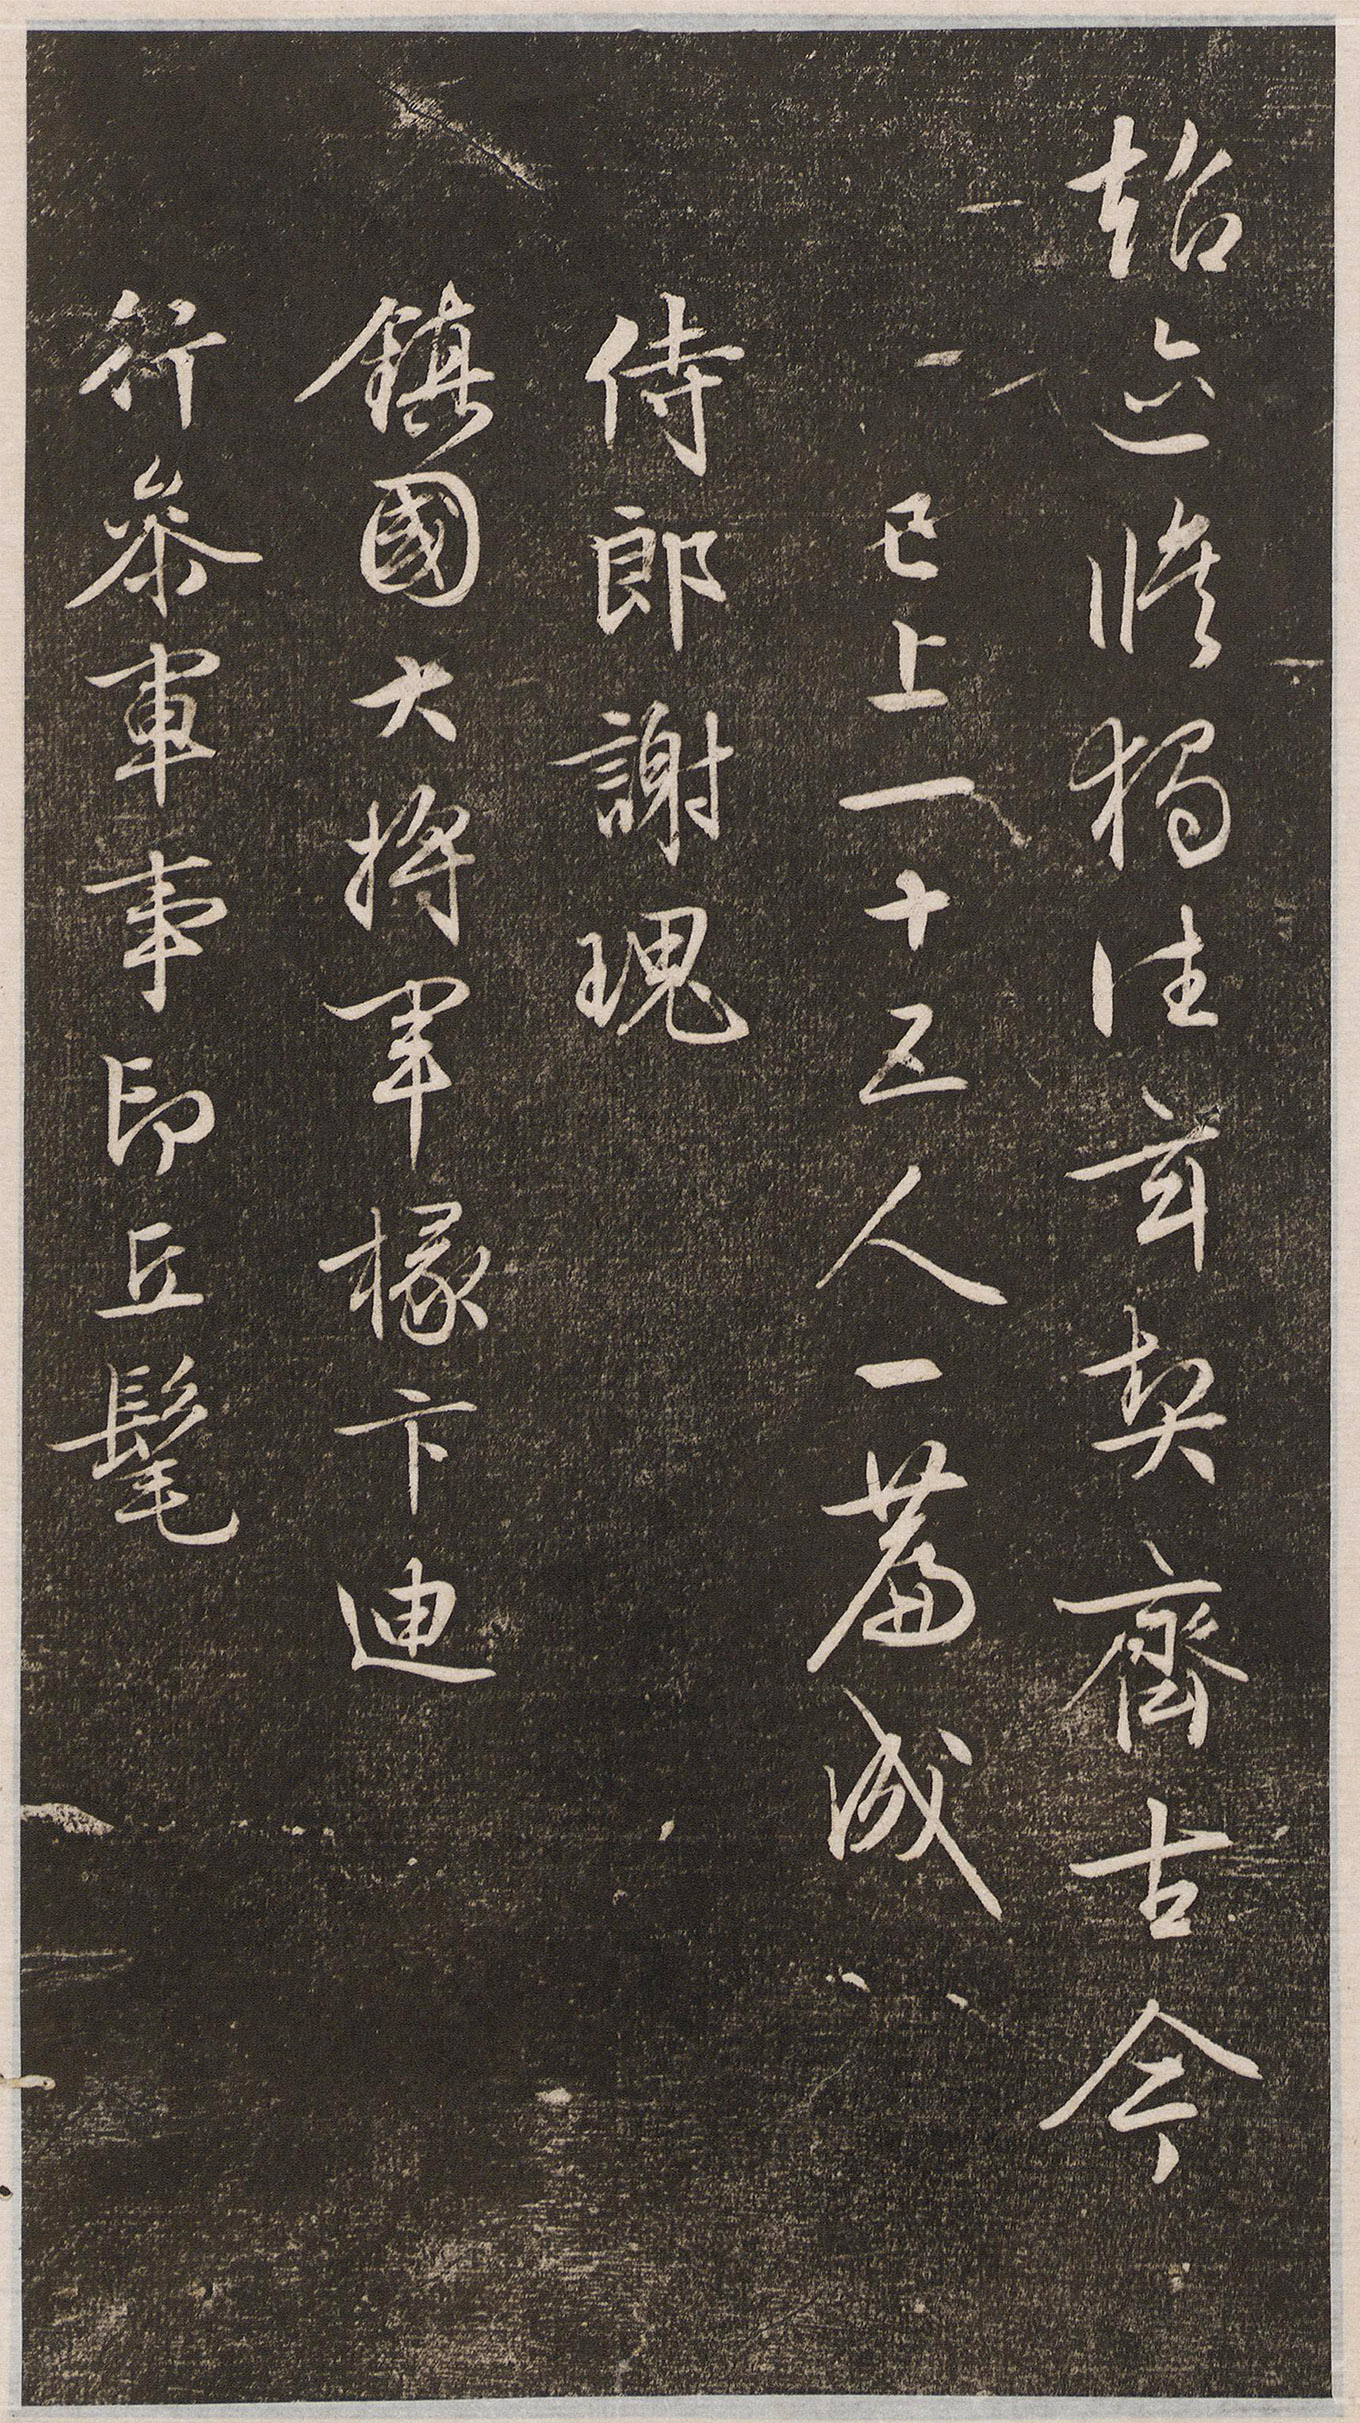 超迹脩獨往真契齊古今
已上一十五人一篇成
侍郎謝瑰
鎮國大將軍掾卞迪
行參軍事印丘髦